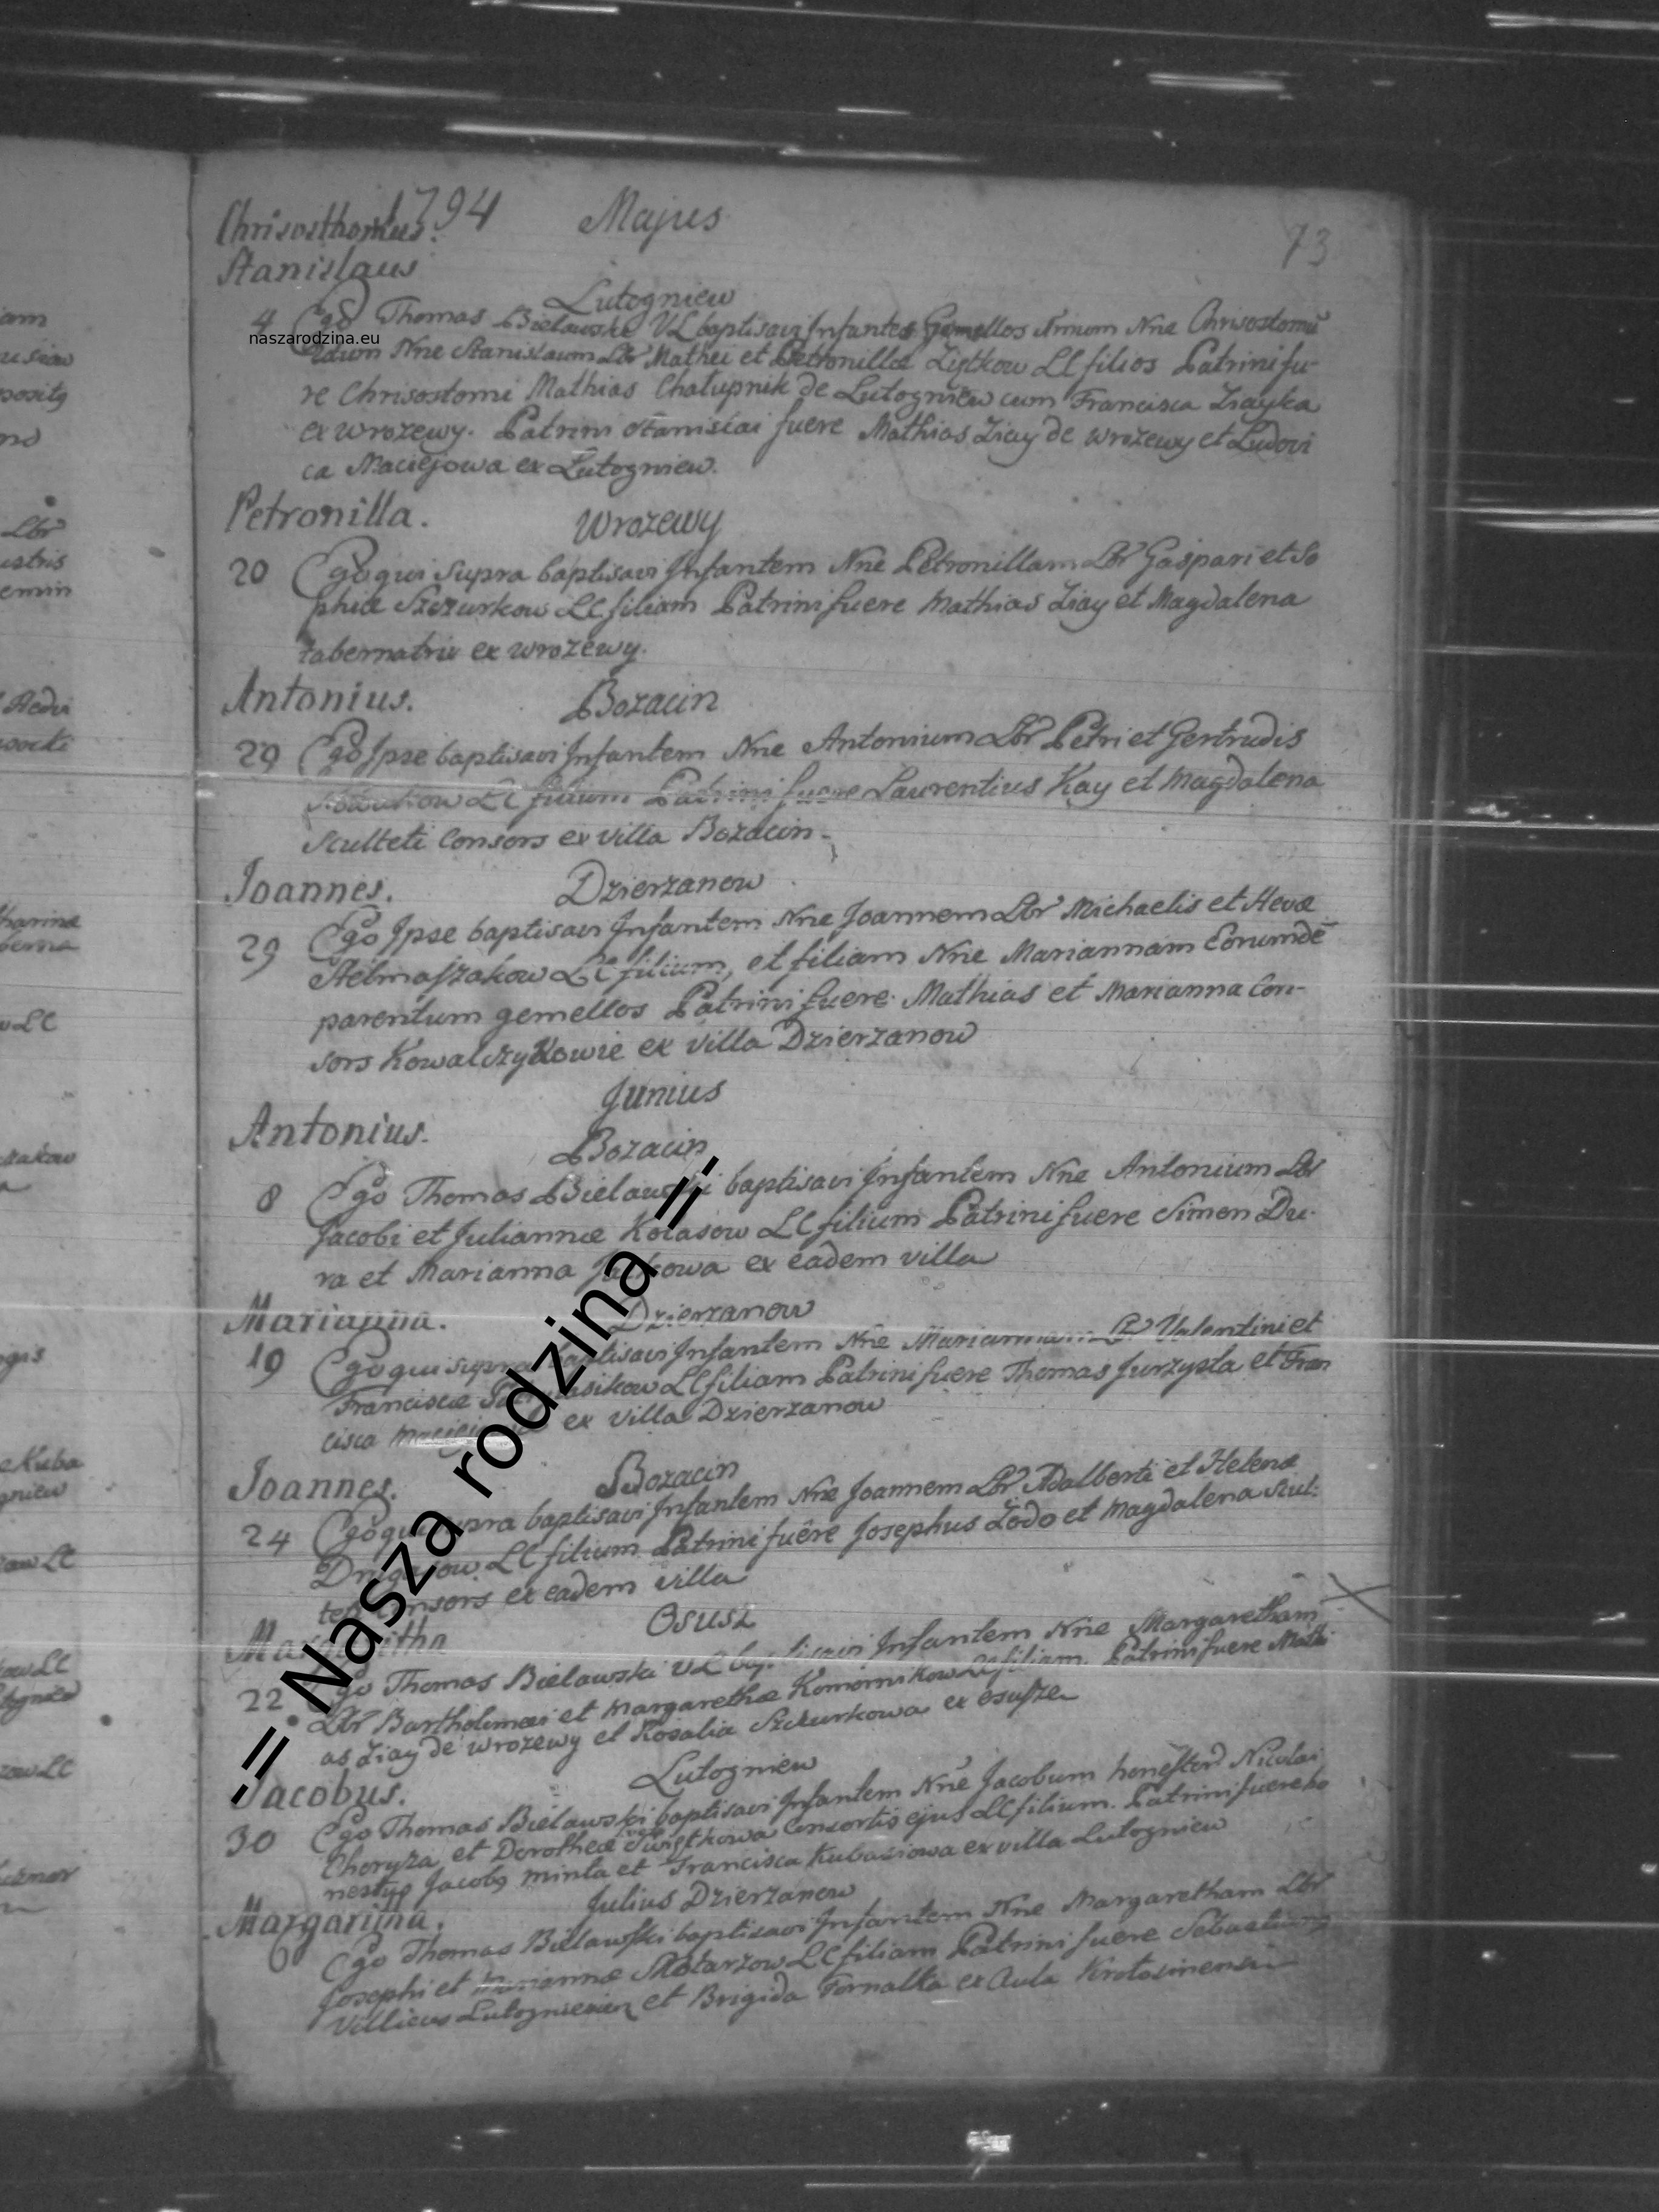 1794 Majus 73
Chrisosthomus.
Stanislaus
Lutogniew
4 Ego Thomas Bielawski VL baptisavi Infantes Gemellos Nne Chrisostomū
naszarodzina.eu
Nne Stanislaum Lbr Mathei et Petronillæ LC filios Patrini fu-
re Chrisostomi Mathias Chałupnik de Lutogniew cum Francisca Ziayka
ex Wrozewy. Patrini Stanislai fuere Mathias Ziay de Wrozewy et Ludovi
ca Maciejowa ex Lutogniew.
Petronilla. Wrozewy
20 Ego qui Supra baptisavi Infantem Nne Petronillam Lbr Gaspari et So
phiæ Szczurkow LC filiam Patrini fuere Mathias Ziay et Magdalena
tabernatrix ex Wrozewy.
Antonius. Bozacin
29 Ego Ipse baptisavi Infantem Nne Antonium Lbr Petri et Gertrudis
LC filium Patrini fuere Laurentius Kay et Magdalena
Sculteti Consors ex villa Bozacin.
Joannes. Dzierzanow
29 Ego Ipse baptisavi Infantem Nne Joannem Lbr Michaelis et Hevæ
Stelmaszakow LC filium, et filiam Nne Mariannam Eorumdē
parentum gemellos Patrini fuere Mathias et Marianna Con-
sors Kowalczykowie ex villa Dzierzanow
Junius
Antonius. Bozacin
8 Ego Thomas Bielawski baptisavi Infantem Nne Antonium Lbr
Jacobi et Juliannæ Kolasow LC filium Patrini fuere Simon Du-
ra et Marianna ex eadem villa
Marianna. Dzierzanow
19 Ego qui supra baptisavi Infantem Nne Mariannam Lbr Valentini et
Francisca LC filiam Patrini fuere Thomas Jurzysta et Fran
cisca ex villa Dzierzanow
Joannes. Bozacin
24 Ego qui supra baptisavi Infantem Nne Joannem Lbr Adalberti et Helenæ
LC filium Patrini fuêre Josephus Lodo et Magdalena Scul-
teti Consors ex eadem villa
Osusz
22 Ego Thomas Bielawski VL baptisavi Infantem Nne Margaretham
Lbr Bartholomæi et Margarethæ Komornikow LC filiam. Patrini fuere Mathi
as Ziay de Wrozewy et Rosalia Szczurkowa ex Osusze
Jacobus. Lutogniew
30 Ego Thomas Bielawski baptisavi Infantem Nne Jacobum honestor Nicolai
Choryza et Dorotheæ Swiętkowa Consortis ejus LC filium. Patrini fuere ho
nestus Jacobus Minta et Francisca Kubasiowa ex villa Lutogniew
Julius Dzierzanow
Ego Thomas Bielawski baptisavi Infantem Nne Margaretham Lbr
Josephi et Mariannæ LC filiam Patrini fuere Sebastianus
Villicus et Brigida Fornalka ex Aula Krotosinensi
-= Nasza rodzina =-